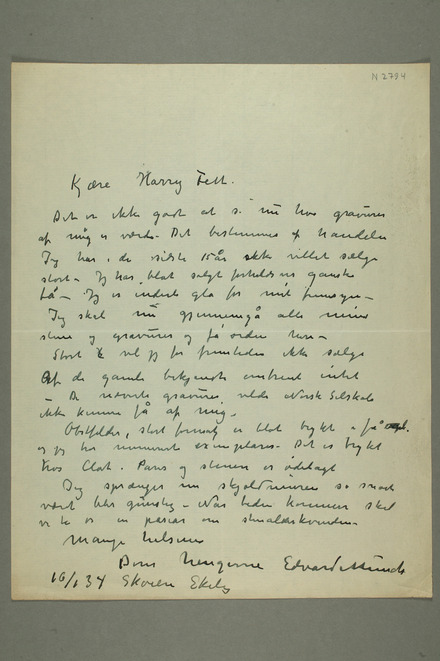 N 2794
Kjære Harry Fett.
Det er ikke godt at si nu hva gravures
af mig er værd. Det bestemmes af handelen
Jeg har i de sidste 15 år ikke villet sælge
stort – Jeg har blot solgt forholdsvis ganske
få – Jeg er inderlig gla for mit
Jeg skal nu gjennemgå alle mine
stene og gravures og få orden
Stort vil jeg for fremtiden ikke sælge
Af de gamle bekjendte omtrent intet
– De nævnte gravures vilde Norsk Selskab
ikke kunne få af mig.
Obstfelder, stort format er blot trykt i få expl.
og jeg har nummeret exemplarer – Det er trykt
hos Clot. Paris og stenen er ødelagt
Jeg sprænger nu så snart
været blir gunstig – Når tiden kommer skal
vi ta os en passiar om
Mange hilsener
Deres hengivne Edvard Munch
16/1 34 Skøien Ekely